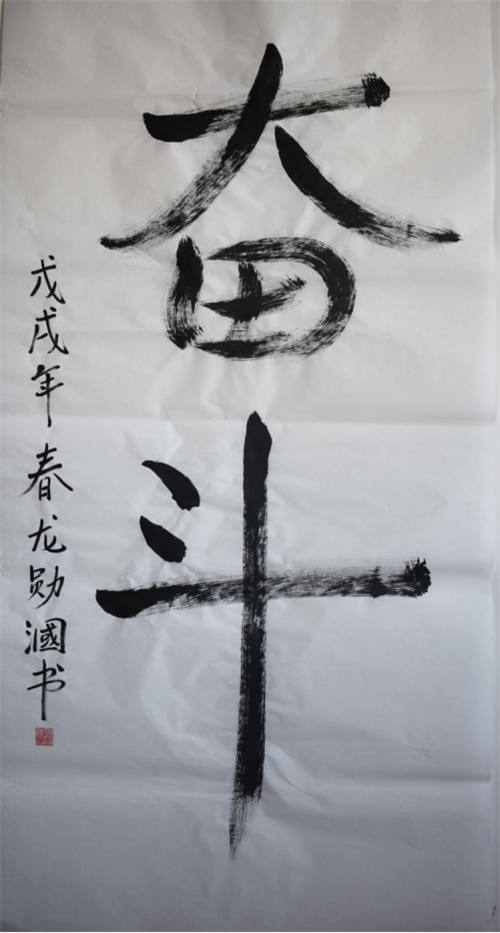 奋斗
戊戌年春龙勋漍书